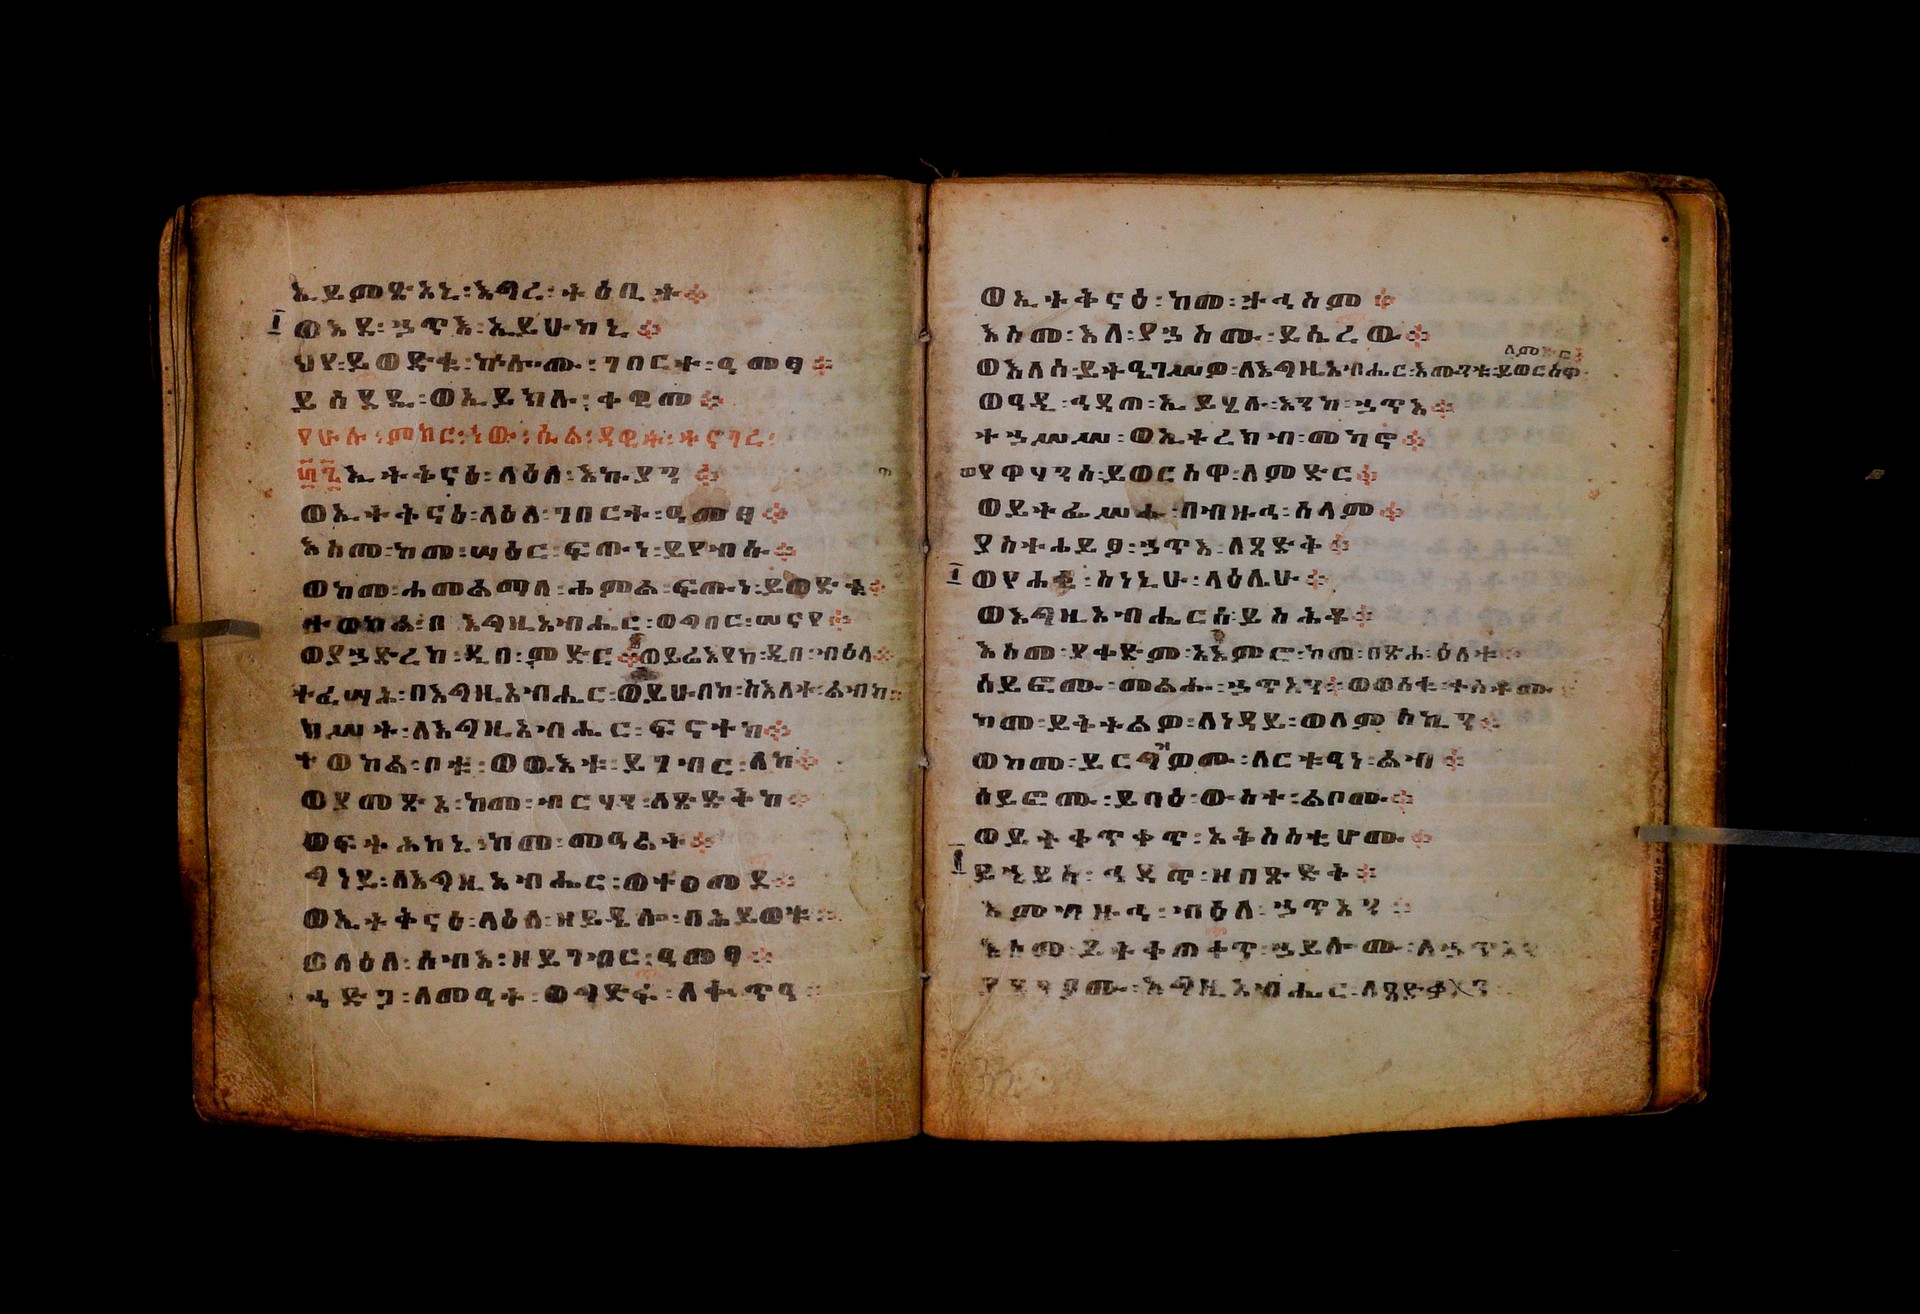 ኢይመጽአኒ፡እግረ፡ትዕቢት፨
ወእደ፡ኃጥእ፡ኢይሁከኒ፨
ህየ፡ይወድቁ፡ኵሎሙ፡ገበርተ፡ዓመፃ፨
ይሰደዱ፡ወኢይክሉ፡ቀዊመ፨
የሁሉ፡ምክር፡ነው፡ሲል፡ዳዊት፡ተናገረ፡
፴፮ኢትቅናዕ፡ላዕለ፡እኩያን፨
ወኢትቅናዕ፡ላዕለ፡ገበርተ፡ዓመፃ፨
እስመ፡ከመ፡ሣዕር፡ፍጡነ፡ይየብሱ፨
ወከመ፡ሐመልማለ፡ሐምል፡ፍጡነ፡ይወድቁ፨
ተወከል፡በእግዚአብሔር፡ወግበር፡ሠናየ፨
ወያኃድረከ፡ዲበ፡ምድር፨ወይሬእየከ፡ዲበ፡ብዕላ፨
ተፈሣሕ፡በእግዚአብሔር፡ወይሁበከ፡ስእለተ፡ልብከ፨
ክሠት፡ለእግዚአብሔር፡ፍኖተከ፨
ተወከል፡ቦቱ፡ወውእቱ፡ይገብር፡ለከ፨
ወያመጽእ፡ከመ፡ብርሃን፡ለጽድቅከ፨
ወፍትሕከኒ፡ከመ፡መዓልት፨
ግነይ፡ለእግዚአብሔር፡ወተዐመዶ፨
ወኢትቅናዕ፡ላዕለ፡ዘይዴሎ፡በሕይወቱ፨
ወላዕለ፡ሰብእ፡ዘይገብር፡ዓመፃ፨
ኅድጋ፡ለመዓት፡ወግድፋ፡ለቍጥዓ፨
ወኢትቅናዕ፡ከመ፡ታሕስም፨
እስመ፡እለ፡ያኃስሙ፡ይሤረው፨
ወእለሰ፡ይትዔገሥዎ፡ለእግዚአብሔር፡እሙንቱ፡ይወርስዋ
ለምድር፨
ወዓዲ፡ኅዳጠ፡ኢይሄሉ፡እንከ፡ኃጥእ፨
ተኃሥሥ፡ወኢትረክብ፡መካኖ፨
ወየዋሃንሰ፡ይወርስዋ፡ለምድር፨
ወይትፌሥሑ፡በብዙኅ፡ሰላም፨
ያስተሐይፆ፡ኃጥእ፡ለጻድቅ፨
ወየሐቂ፡ስነኒሁ፡ላዕሌሁ፨
ወእግዚአብሔርሰ፡ይስሕቆ፨
እስመ፡ያቀድም፡አእምሮ፡ከመ፡በጽሐ፡ዕለቱ፨
ሰይፎሙ፡መልሑ፡ኃጥኣን፨ወወሰቁ፡ቀስቶሙ፨
ከመ፡ይቅትልዎ፡ለነዳይ፡ወለምስኪን፨
ወከመ፡ይርግዝዎሙ፡ለርቱዓነ፡ልብ፨
ሰይፎሙ፡ይባዕ፡ውስተ፡ልቦሙ፨
ወይትቀጥቀጥ፡አቅስስቲሆሙ፨
ይኄይስ፡ኅዳጥ፡ዘበጽድቅ፨
እምብዙኅ፡ብዕለ፡ኃጥኣን፨
እስመ፡ይትቀጠቀጥ፡ኃይሎሙ፡ለኃጥኣን